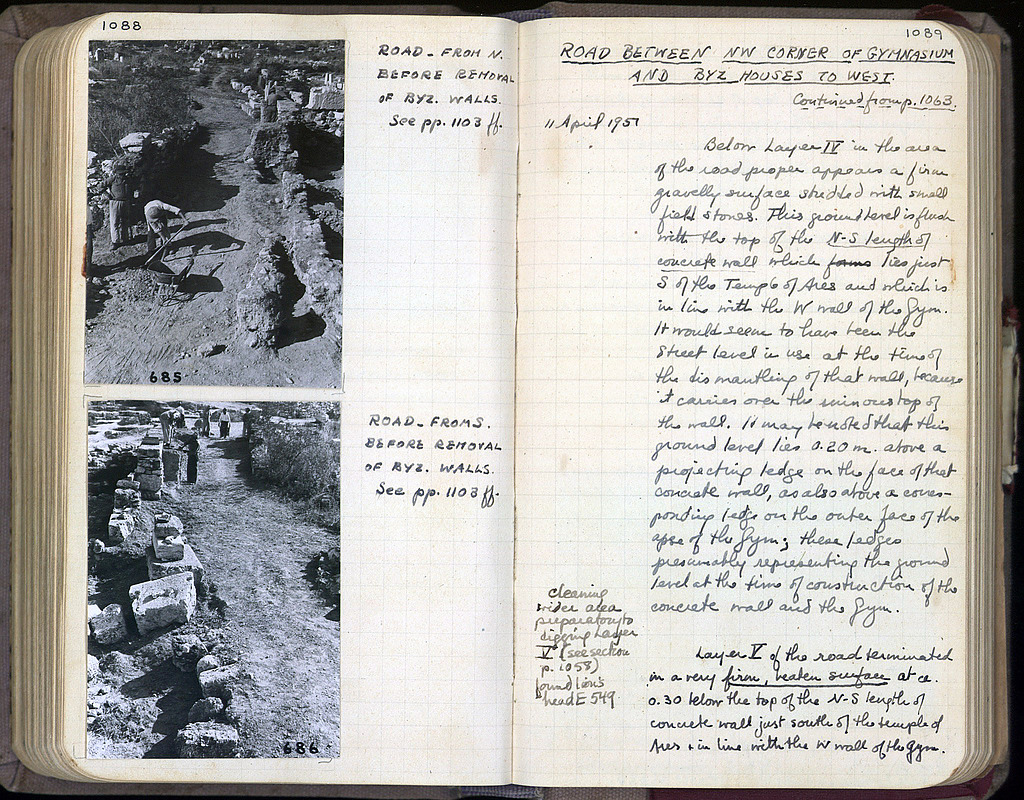 1088
ROAD - FROM N.
BEFORE REMOVAL
OF BYZ. WALLS.
See pp. 1103 ff.
685
ROAD - FROM S.
BEFORE REMOVAL
OF BYZ. WALLS.
See pp. 1103 ff.
686
1089
ROAD BETWEEN NW CORNER OF GYMNASIUM
AND BYZ HOUSES TO WEST.
Continued from p. 1063.
11 April 1951
Below Layer IV in the area
of the road proper appears a firm
gravelly surface studded with small
field stones. This ground level is flush
with the top of the N-S length of
concrete wall which forms lies just
S of the Temple of Ares and which is
in line with the W wall of the Gym.
It would seem to have been the
street level in use at the time of
the dismantling of that wall, because
it carries over the ruinous top of
the wall. It may be noted that this
ground level lies 0.20 m. above a
projecting ledge on the face of that
concrete wall, as also above a corres-
ponding ledge on the outer face of the
apse of the Gym; these ledges
presumably representing the ground
level at the time of construction of the
concrete wall and the Gym.
cleaning
wider area
preparatory to
digging Layer
V (see section
p. 1058)
found lion's
head E 549
Layer V of the road terminated
in a very firm, beaten surface at ca.
0.30 below the top of the N-S length of
concrete wall just south of the temple of
Ares + in line with the W wall of the Gym.